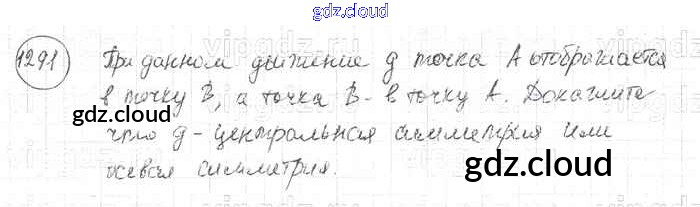 gdz.cloud
1291 При данном движение g точка A отображается
в точку B, а точка B - в точку A. Докажите
gdz.cloud
что g - центральная симметрия или
осевая симметрия.
gdz.cloud